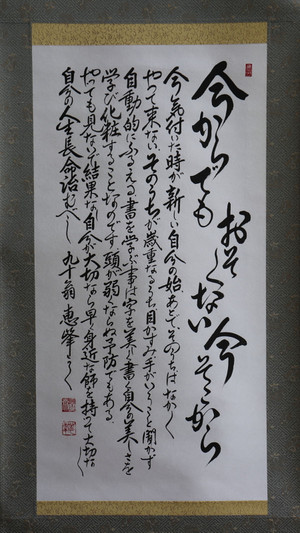 今からでも
おそくない今そこから
今気付いた時が新しい自分の始あとでそのうちはなかく
やって来ないそのうちが歳重なるうち目かすみ手がいうこと聞かず
自動的にふるえる書を学ぶ事は字を美しく書く自分の美しさを
学び化粧することなのです頭が弱くならぬ予防でもある
やっても見ないで結果な自分が大切なら早く身近な師を持って大切な
自分の人生長命治むべし 九十翁 恵峰かく